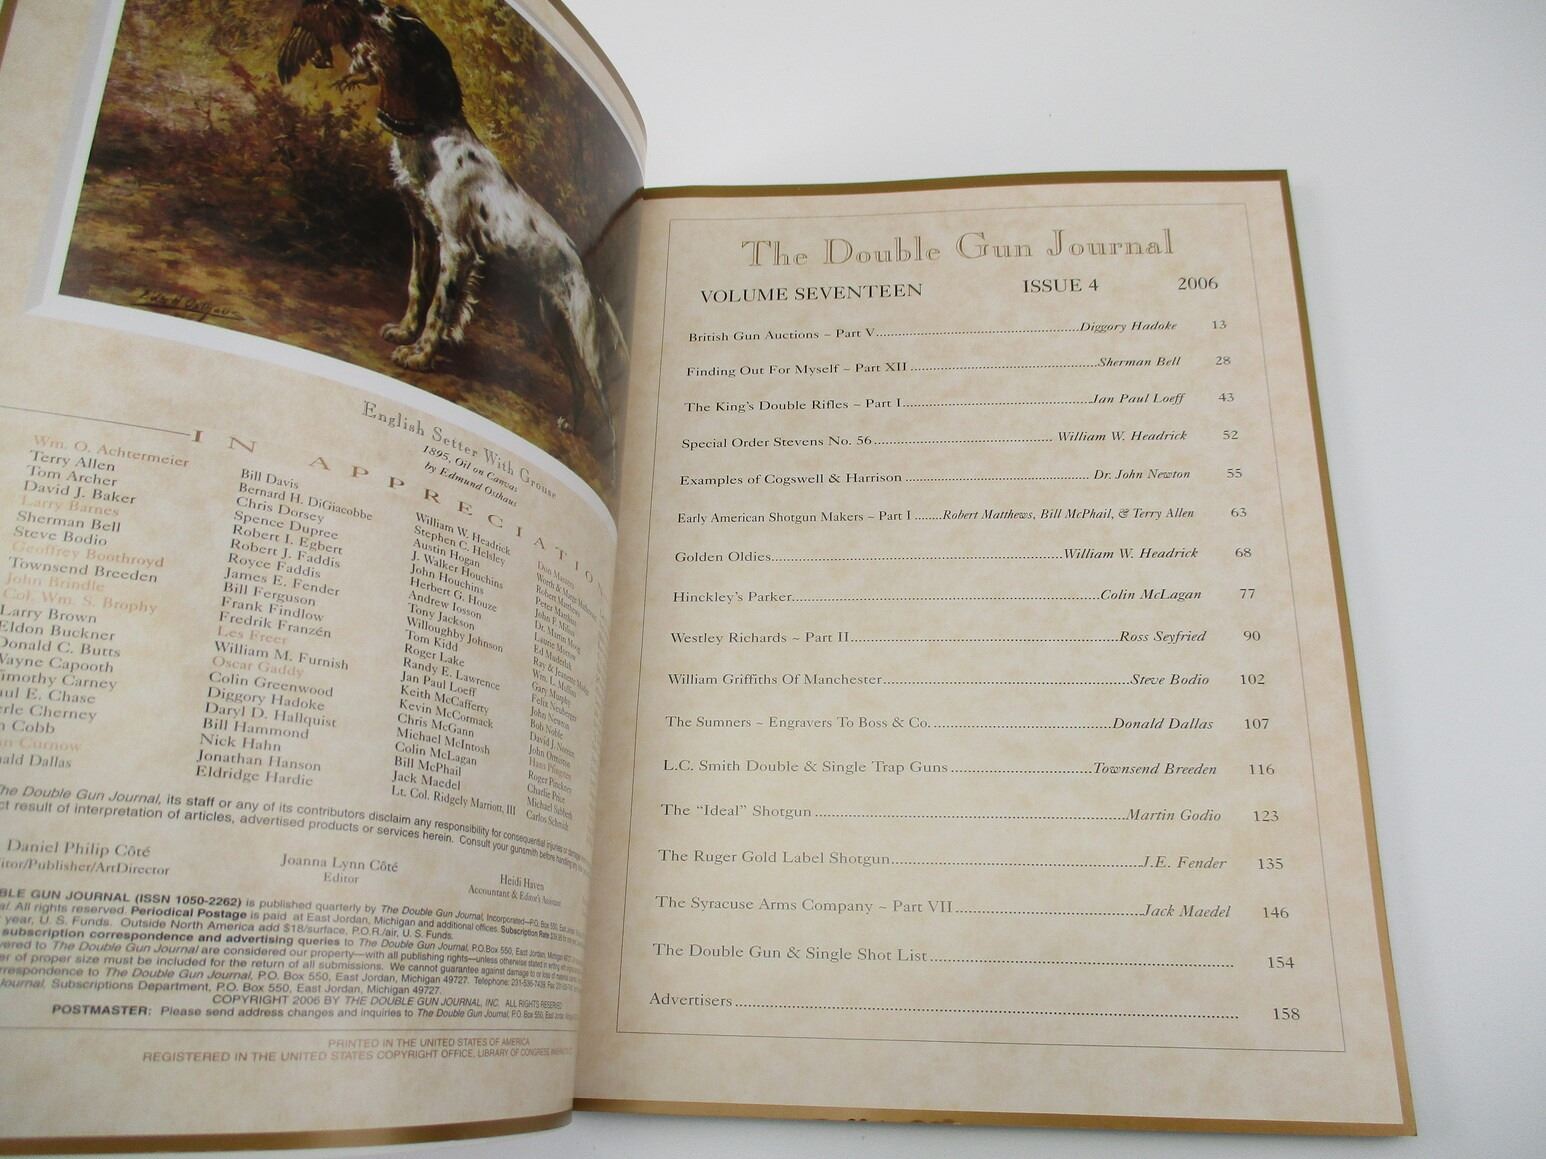 English Setter With Grouse
1895, Oil on Canvas
by Edmund Osthaus
IN APPRECIATION
Wm. O. Achtermeier
Terry Allen
Tom Archer
David J. Baker
Larry Barnes
Sherman Bell
Steve Bodio
Geoffrey Boothroyd
Townsend Breeden
John Brindle
Col. Wm. S. Brophy
Larry Brown
Eldon Buckner
Donald C. Butts
Wayne Capooth
Timothy Carney
Paul E. Chase
Cherney
Cobb
Curnow
Donald Dallas
Bill Davis
Bernard H. DiGiacobbe
Chris Dorsey
Spence Dupree
Robert I. Egbert
Robert J. Faddis
Royce Faddis
James E. Fender
Bill Ferguson
Frank Findlow
Fredrik Franzén
Les Freer
William M. Furnish
Oscar Gaddy
Colin Greenwood
Diggory Hadoke
Daryl D. Hallquist
Bill Hammond
Nick Hahn
Jonathan Hanson
Eldridge Hardie
William W. Headrick
Stephen C. Helsley
Austin Hogan
J. Walker Houchins
John Houchins
Herbert G. Houze
Andrew Iosson
Tony Jackson
Willoughby Johnson
Tom Kidd
Roger Lake
Randy E. Lawrence
Jan Paul Loeff
Keith McCafferty
Kevin McCormack
Chris McGann
Michael McIntosh
Colin McLagan
Bill McPhail
Jack Maedel
Lt. Col. Ridgely Marriott, III
Robert Matthews
Gary Murphy
Felix Neuberger
John Newton
Bob Noble
John Ormiston
Roger Pinckney
Charlie Price
Carlos Schmidt
The Double Gun Journal, its staff or any of its contributors disclaim any responsibility for consequential injuries or
result of interpretation of articles, advertised products or services herein. Consult your gunsmith before handling
Daniel Philip Côté
Editor/Publisher/ArtDirector
Joanna Lynn Côté
Editor
Heidi Haven
Accountant & Editor's Assistant
DOUBLE GUN JOURNAL (ISSN 1050-2262) is published quarterly by The Double Gun Journal, Incorporated—P.O. Box 550, East Jordan,
All rights reserved. Periodical Postage is paid at East Jordan, Michigan and additional offices. Subscription Rate
year, U. S. Funds. Outside North America add $18/surface, P.O.R./air, U. S. Funds.
subscription correspondence and advertising queries to The Double Gun Journal, P.O.Box 550, East Jordan, Michigan
to The Double Gun Journal are considered our property—with all publishing rights—unless otherwise stated in writing
of proper size must be included for the return of all submissions. We cannot guarantee against damage to or loss of material
correspondence to The Double Gun Journal, P.O. Box 550, East Jordan, Michigan 49727. Telephone: 231-536-7439.
Journal, Subscriptions Department, P.O. Box 550, East Jordan, Michigan 49727.
COPYRIGHT 2006 BY THE DOUBLE GUN JOURNAL, INC. ALL RIGHTS RESERVED
POSTMASTER: Please send address changes and inquiries to The Double Gun Journal, P.O. Box 550, East Jordan,
PRINTED IN THE UNITED STATES OF AMERICA
REGISTERED IN THE UNITED STATES COPYRIGHT OFFICE, LIBRARY OF CONGRESS,
The Double Gun Journal
VOLUME SEVENTEEN ISSUE 4 2006
British Gun Auctions ~ Part V Diggory Hadoke 13
Finding Out For Myself ~ Part XII Sherman Bell 28
The King's Double Rifles ~ Part I Jan Paul Loeff 43
Special Order Stevens No. 56 William W. Headrick 52
Examples of Cogswell & Harrison Dr. John Newton 55
Early American Shotgun Makers ~ Part I Robert Matthews, Bill McPhail, & Terry Allen 63
Golden Oldies William W. Headrick 68
Hinckley's Parker Colin McLagan 77
Westley Richards ~ Part II Ross Seyfried 90
William Griffiths Of Manchester Steve Bodio 102
The Sumners ~ Engravers To Boss & Co. Donald Dallas 107
L.C. Smith Double & Single Trap Guns Townsend Breeden 116
The “Ideal” Shotgun Martin Godio 123
The Ruger Gold Label Shotgun J.E. Fender 135
The Syracuse Arms Company ~ Part VII Jack Maedel 146
The Double Gun & Single Shot List 154
Advertisers 158